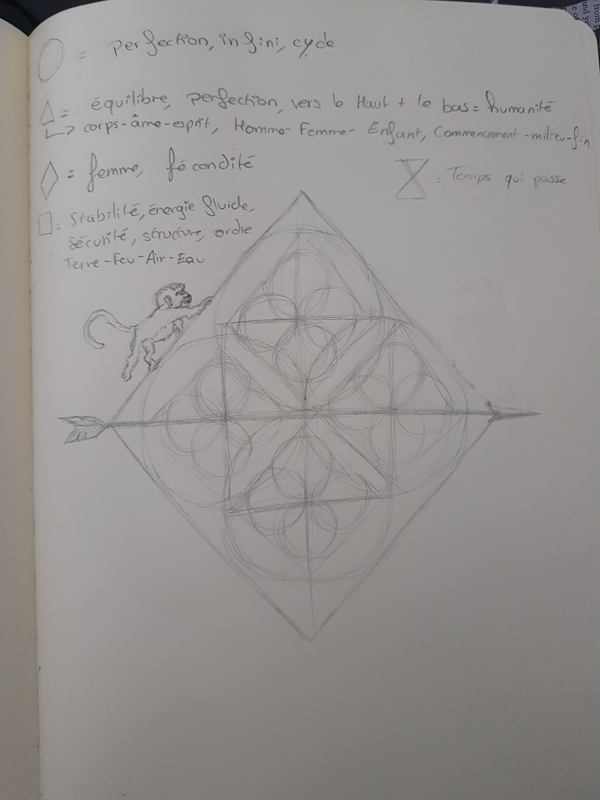 = perfection, infini, cycle
= équilibre, perfection, vers le Haut + le bas = humanité
corps-âme-esprit, Homme-Femme-Enfant, Commencement-milieu-fin
= femme, fécondité
= Temps qui passe
= Stabilité, énergie fluide,
sécurité, structure, ordre
Terre-Feu-Air-Eau